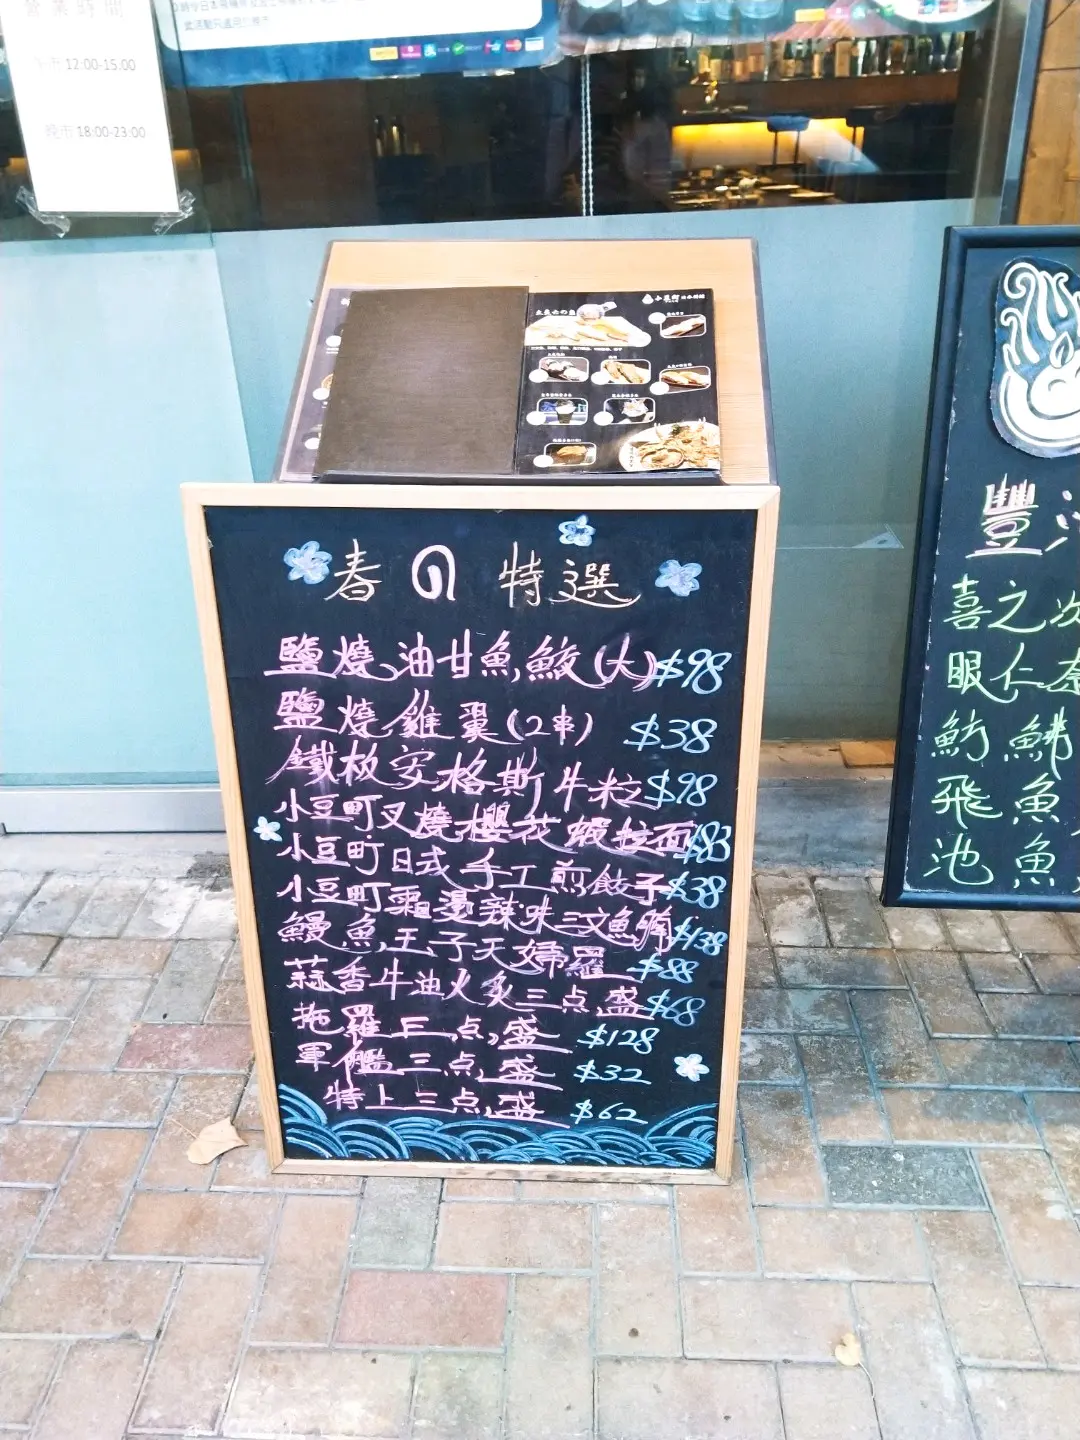 營業時間
午市 12:00-15:00
晚市 18:00-23:00
春の特選
鹽燒油甘魚鮫(大) $98
鹽燒雞翼(2串) $38
鐵板安格斯牛粒 $98
小豆町叉燒櫻花蝦拉面 $83
小豆町日式手工煎餃子 $38
小豆町霜燙辣味三文魚腩 $138
鰻魚,玉子天婦羅 $88
蒜香牛油火炙三点盛 $68
拖羅三点盛 $128
軍艦三点盛 $32
特上三点盛 $62
豐
喜之次
眼仁奈
魴鮄
飛魚
池魚